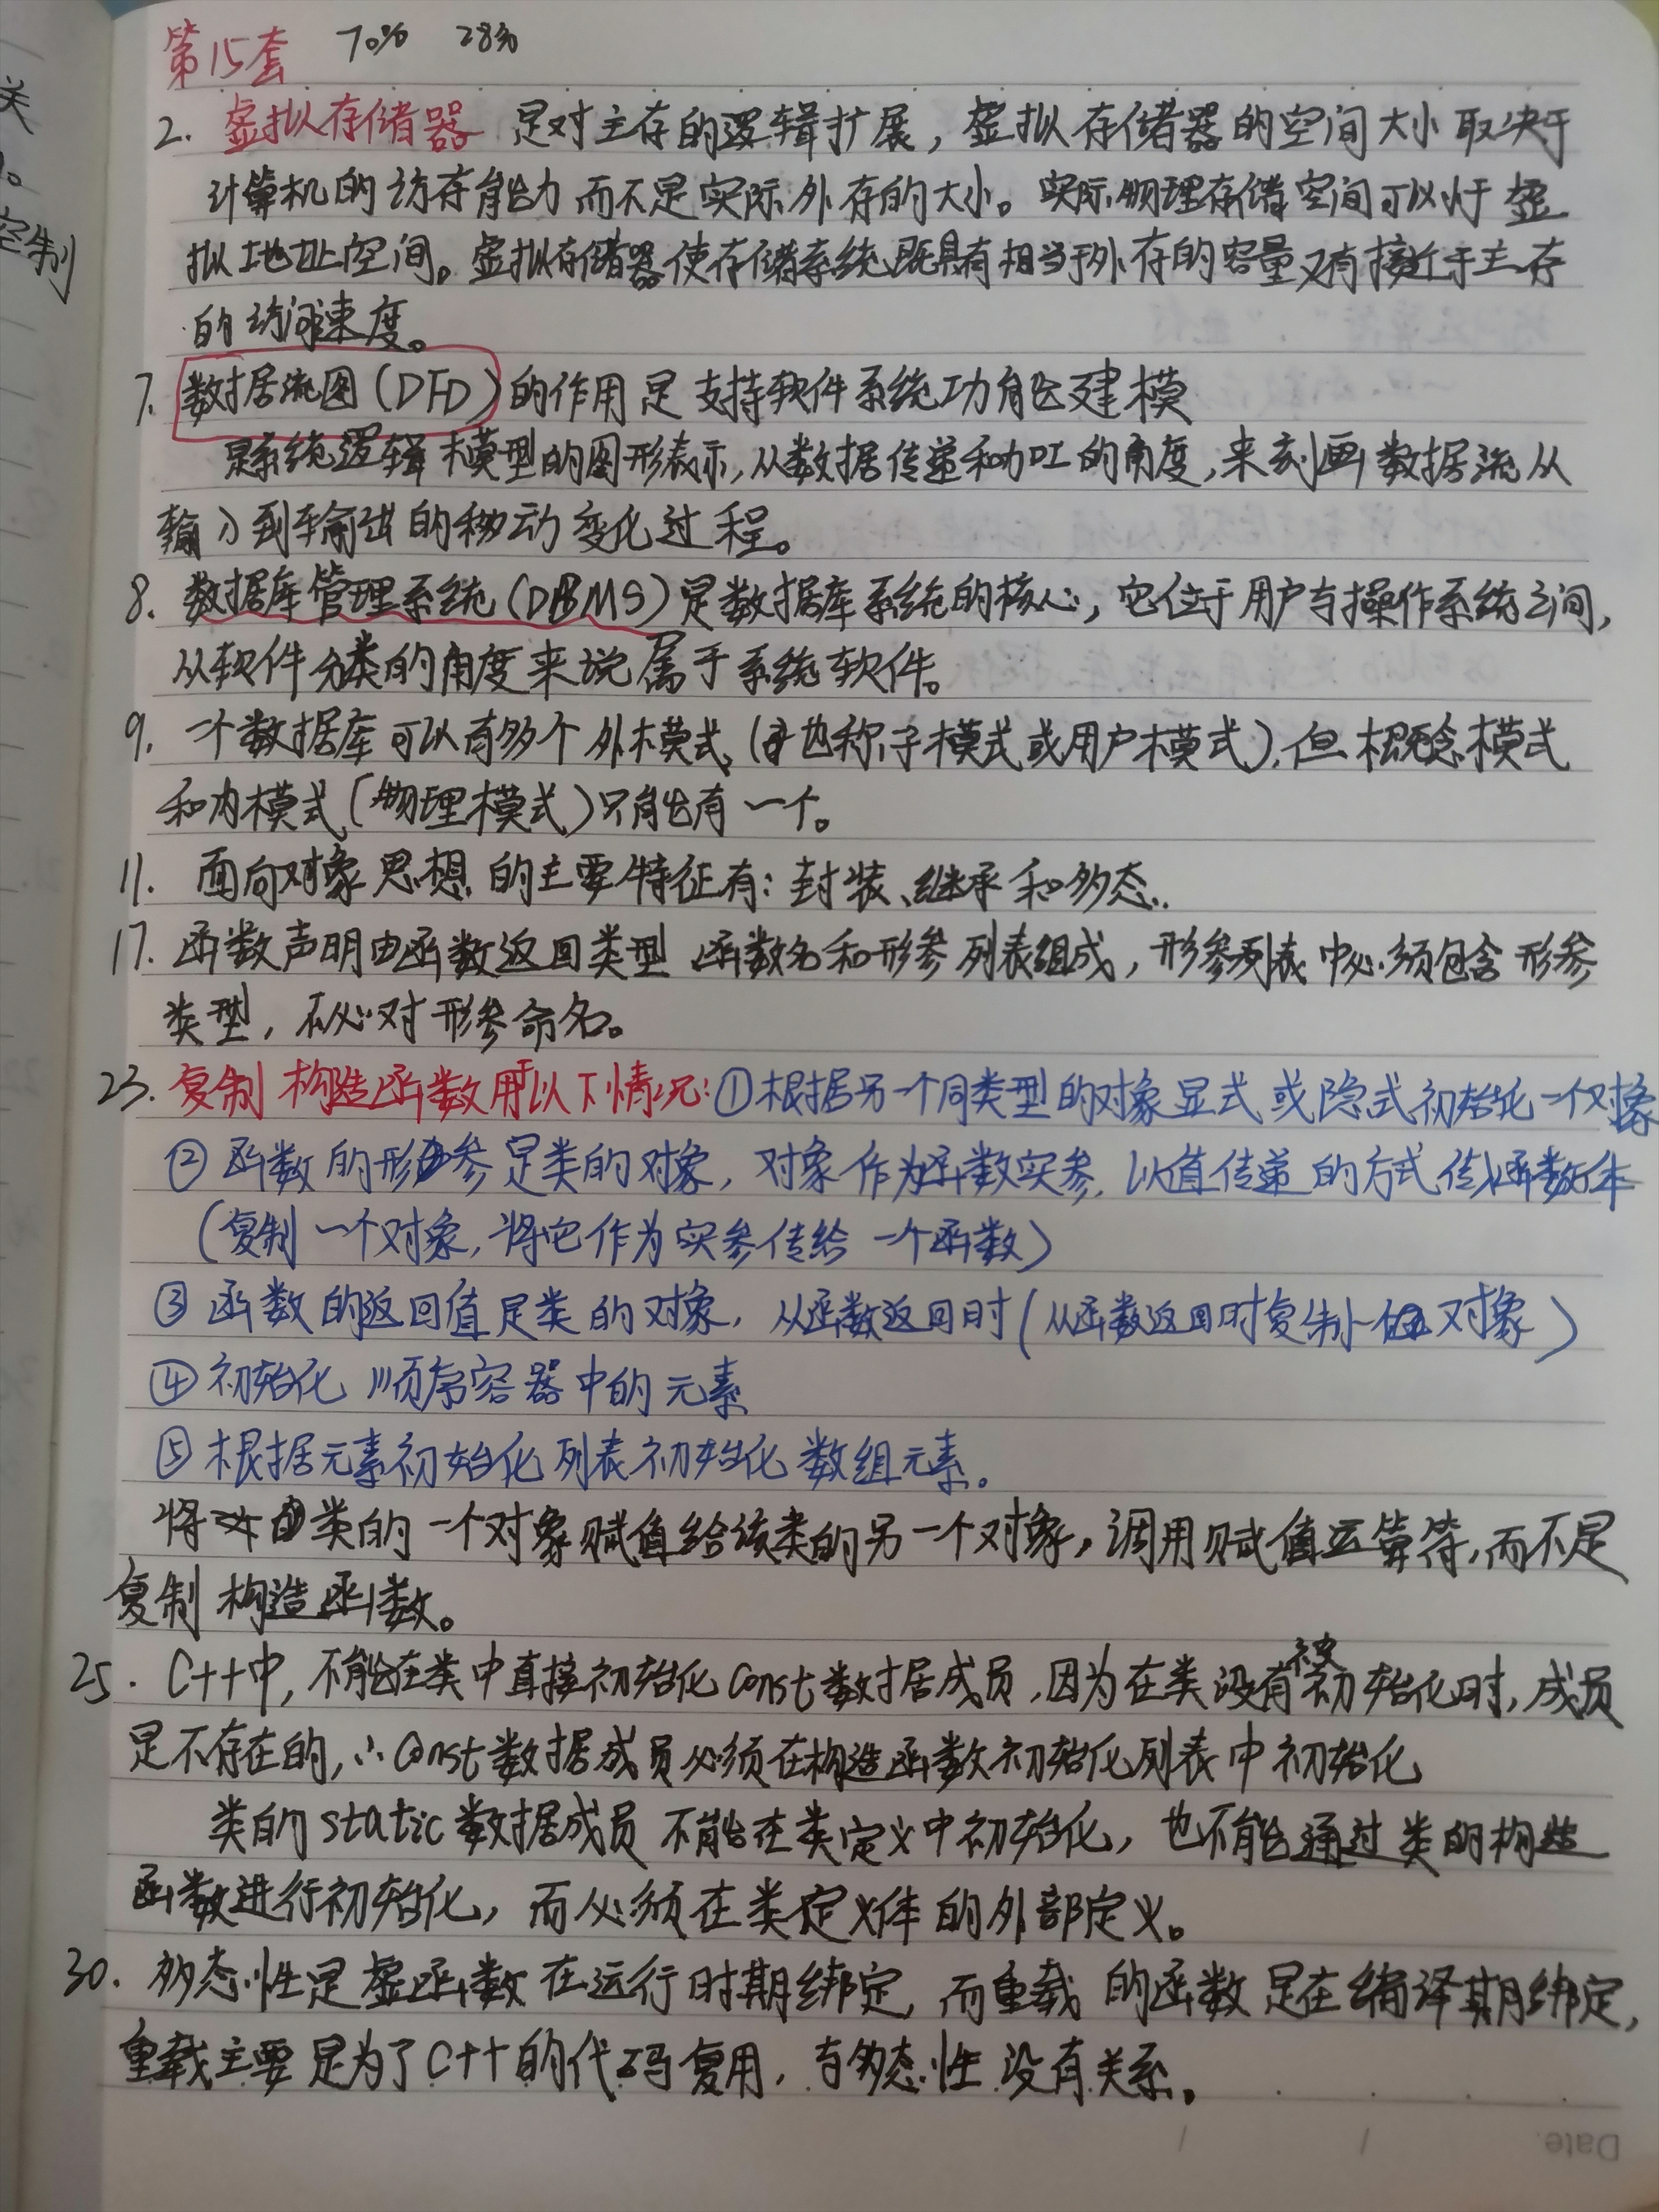 第15套 70% 28分
2. 虚拟存储器 是对主存的逻辑扩展，虚拟存储器的空间大小取决于
计算机的访存能力而不是实际外存的大小。实际物理存储空间可以小于虚
拟地址空间。虚拟存储器使存储系统既具有相当于外存的容量又有接近于主存
的访问速度。
7. 数据流图(DFD)的作用是支持软件系统功能建模
是系统逻辑模型的图形表示，从数据传递和加工的角度，来刻画数据流从
输入到输出的移动变化过程。
8. 数据库管理系统(DBMS)是数据库系统的核心，它位于用户与操作系统之间，
从软件分类的角度来说属于系统软件。
9. 一个数据库可以有多个外模式(也称子模式或用户模式)，但概念模式
和内模式(物理模式)只能有一个。
11. 面向对象思想的主要特征有：封装、继承和多态.
17. 函数声明由函数返回类型、函数名和形参列表组成，形参列表中必须包含形参
类型，不必对形参命名。
23. 复制构造函数用于以下情况：①根据另一个同类型的对象显式或隐式初始化一个对象
②函数的形参是类的对象，对象作为函数实参，以值传递的方式传入函数体
(复制一个对象，将它作为实参传给一个函数)
③函数的返回值是类的对象，从函数返回时(从函数返回时复制一个对象)
④初始化顺序容器中的元素
⑤根据元素初始化列表初始化数组元素。
将类的一个对象赋值给该类的另一个对象，调用赋值运算符，而不是
复制构造函数。
25. C++中，不能在类中直接初始化const数据成员，因为在类没有被初始化时，成员
是不存在的，∴const数据成员必须在构造函数初始化列表中初始化
类的static数据成员不能在类定义中初始化，也不能通过类的构造
函数进行初始化，而必须在类定义体的外部定义。
30. 多态性是虚函数在运行时期绑定，而重载的函数是在编译期绑定，
重载主要是为了C++的代码复用，与多态性没有关系。
关
空制
Date.